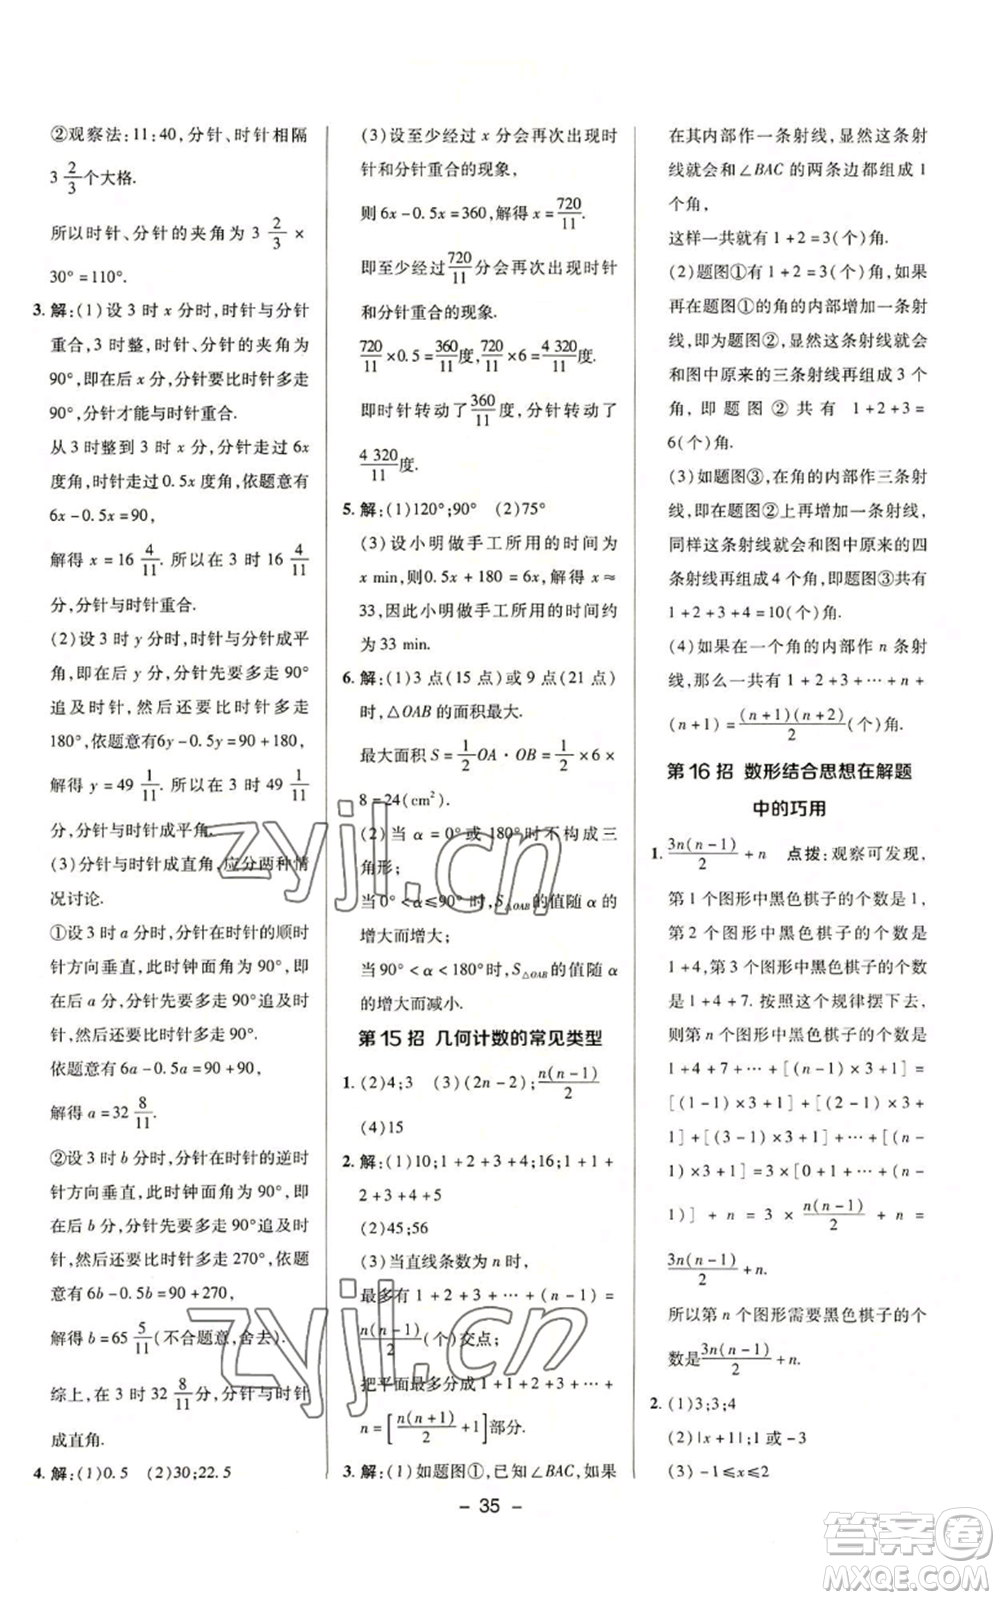 ②观察法:11:40,分针、时针相隔
3 2/3 个大格.
所以时针、分针的夹角为 3 2/3 ×
30°=110°.
3. 解:(1)设 3 时 x 分时,时针与分针
重合,3 时整,时针、分针的夹角为
90°,即在后 x 分,分针要比时针多走
90°,分针才能与时针重合.
从 3 时整到 3 时 x 分,分针走过 6x
度角,时针走过 0.5x 度角,依题意有
6x-0.5x=90,
解得 x=16 4/11. 所以在 3 时 16 4/11
分,分针与时针重合.
(2)设 3 时 y 分时,分针与时针成平
角,即在后 y 分,分针先要多走 90°
追及时针,然后还要比时针多走
180°,依题意有6y-0.5y=90+180,
解得 y=49 1/11. 所以在 3 时 49 1/11
分,分针与时针成平角.
(3)分针与时针成直角,应分两种情
况讨论.
①设3时 a 分时,分针在时针的顺时
针方向垂直,此时钟面角为 90°,即
在后 a 分,分针先要多走 90°追及时
针,然后还要比时针多走 90°.
依题意有 6a-0.5a=90+90,
解得 a=32 8/11.
②设3时 b 分时,分针在时针的逆时
针方向垂直,此时钟面角为 90°,即
在后 b 分,分针先要多走90°追及时
针,然后还要比时针多走270°,依题
意有 6b-0.5b=90+270,
解得 b=65 5/11(不合题意,舍去).
综上,在 3 时 32 8/11 分,分针与时针
成直角.
4. 解:(1)0.5 (2)30;22.5
(3)设至少经过 x 分会再次出现时
针和分针重合的现象,
则 6x-0.5x=360,解得 x=720/11.
即至少经过 720/11 分会再次出现时针
和分针重合的现象.
720/11×0.5=360/11度,720/11×6=4 320/11度.
即时针转动了 360/11 度,分针转动了
4 320/11 度.
5. 解:(1)120°;90° (2)75°
(3)设小明做手工所用的时间为
x min,则0.5x+180=6x,解得 x≈
33,因此小明做手工所用的时间约
为 33 min.
6. 解:(1)3 点(15 点)或 9 点(21 点)
时,△OAB 的面积最大.
最大面积 S=1/2 OA·OB=1/2×6×
8=24(cm²)
(2)当 α=0°或180°时不构成三
角形;
当 0°<α≤90°时,S△OAB的值随 α 的
增大而增大;
当 90°<α<180°时,S△OAB的值随 α
的增大而减小.
第 15 招 几何计数的常见类型
1. (2)4;3 (3)(2n-2);n(n-1)/2
(4)15
2. 解:(1)10;1+2+3+4;16;1+1+
2+3+4+5
(2)45;56
(3)当直线条数为 n 时,
最多有 1+2+3+…+(n-1)=
n(n-1)/2(个)交点;
把平面最多分成 1+1+2+3+…+
n=[n(n+1)/2+1]部分.
3. 解:(1)如题图①,已知∠BAC,如果
在其内部作一条射线,显然这条射
线就会和∠BAC 的两条边都组成 1
个角,
这样一共就有 1+2=3(个)角.
(2)题图①有 1+2=3(个)角,如果
再在题图①的角的内部增加一条射
线,即为题图②,显然这条射线就会
和图中原来的三条射线再组成 3 个
角,即题图②共有 1+2+3=
6(个)角.
(3)如题图③,在角的内部作三条射
线,即在题图②上再增加一条射线,
同样这条射线就会和图中原来的四
条射线再组成 4 个角,即题图③共有
1+2+3+4=10(个)角.
(4)如果在一个角的内部作 n 条射
线,那么一共有 1+2+3+…+n+
(n+1)=(n+1)(n+2)/2(个)角.
第 16 招 数形结合思想在解题
中的巧用
1. 3n(n-1)/2+n 点拨:观察可发现,
第 1 个图形中黑色棋子的个数是 1,
第 2 个图形中黑色棋子的个数是
1+4,第 3 个图形中黑色棋子的个数
是 1+4+7. 按照这个规律摆下去,
则第 n 个图形中黑色棋子的个数是
1+4+7+…+[(n-1)×3+1]=
[(1-1)×3+1]+[(2-1)×3+
1]+[(3-1)×3+1]+…+[(n-
1)×3+1]=3×[0+1+…+(n-
1)]+n=3×n(n-1)/2+n=
3n(n-1)/2+n.
所以第 n 个图形需要黑色棋子的个
数是3n(n-1)/2+n.
2. (1)3;3;4
(2)|x+1|;1 或-3
(3)-1≤x≤2
- 35 -
zyjl.cn
zyjl.cn
答案卷
MXQE.COM